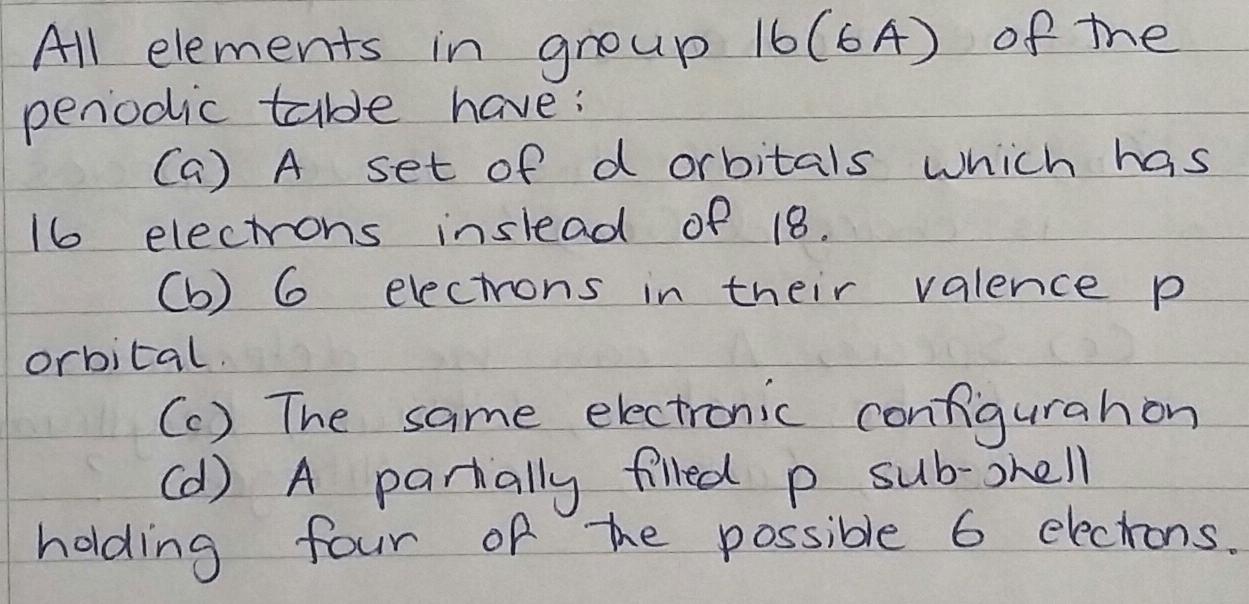 All elements in group 16(6A) of the
periodic table have:
(a) A set of d orbitals which has
16 electrons instead of 18.
(b) 6 electrons in their valence p
orbital.
(c) The same electronic configuration
(d) A partially filled p sub-shell
holding four of the possible 6 electrons.